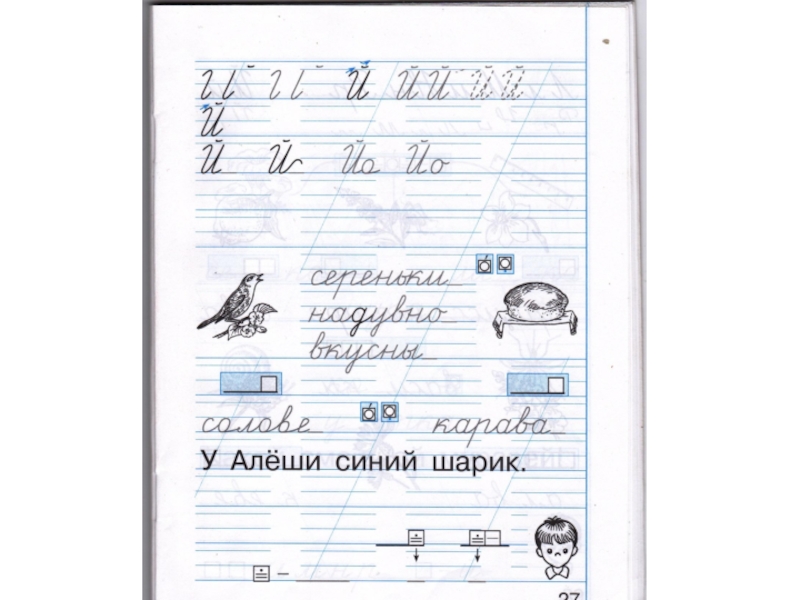 Й Й Й Й Й
Й
Й Й Йо Йо
сереньки_
надувно_
вкусны_
солове_ карава_
У Алёши синий шарик.
27